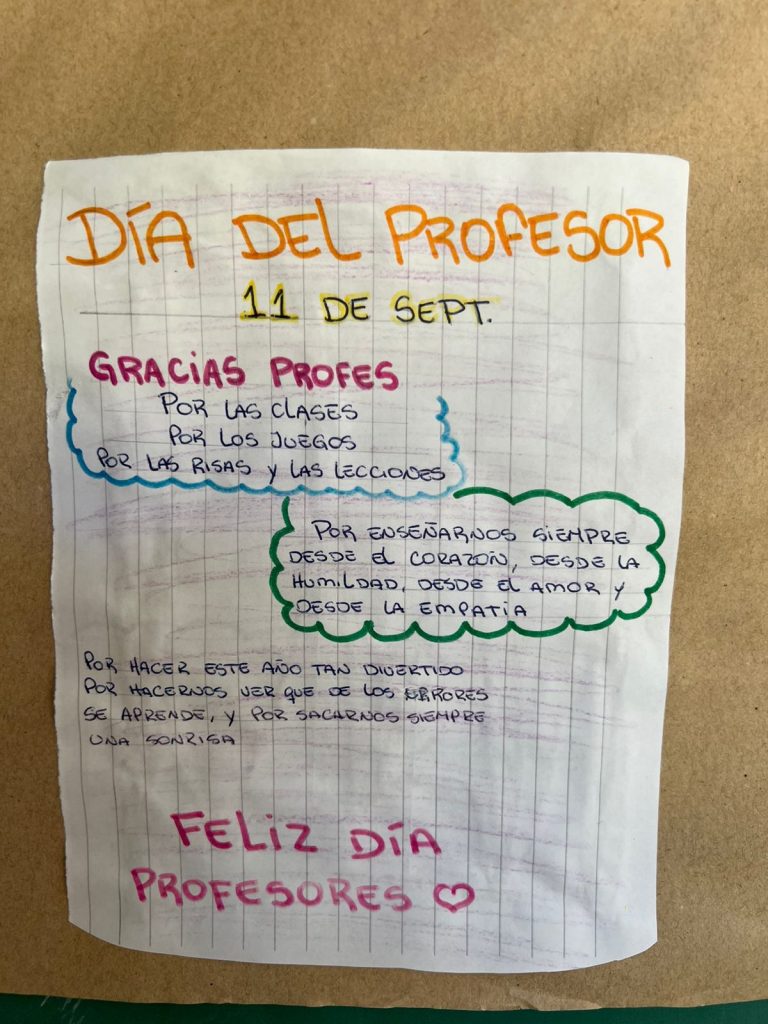 DÍA DEL PROFESOR
11 DE SEPT.
GRACIAS PROFES
POR LAS CLASES
POR LOS JUEGOS
POR LAS RISAS Y LAS LECCIONES
POR ENSEÑARNOS SIEMPRE
DESDE EL CORAZÓN, DESDE LA
HUMILDAD, DESDE EL AMOR Y
DESDE LA EMPATÍA
POR HACER ESTE AÑO TAN DIVERTIDO
POR HACERNOS VER QUE DE LOS ERRORES
SE APRENDE, Y POR SACARNOS SIEMPRE
UNA SONRISA
FELIZ DÍA
PROFESORES ♡